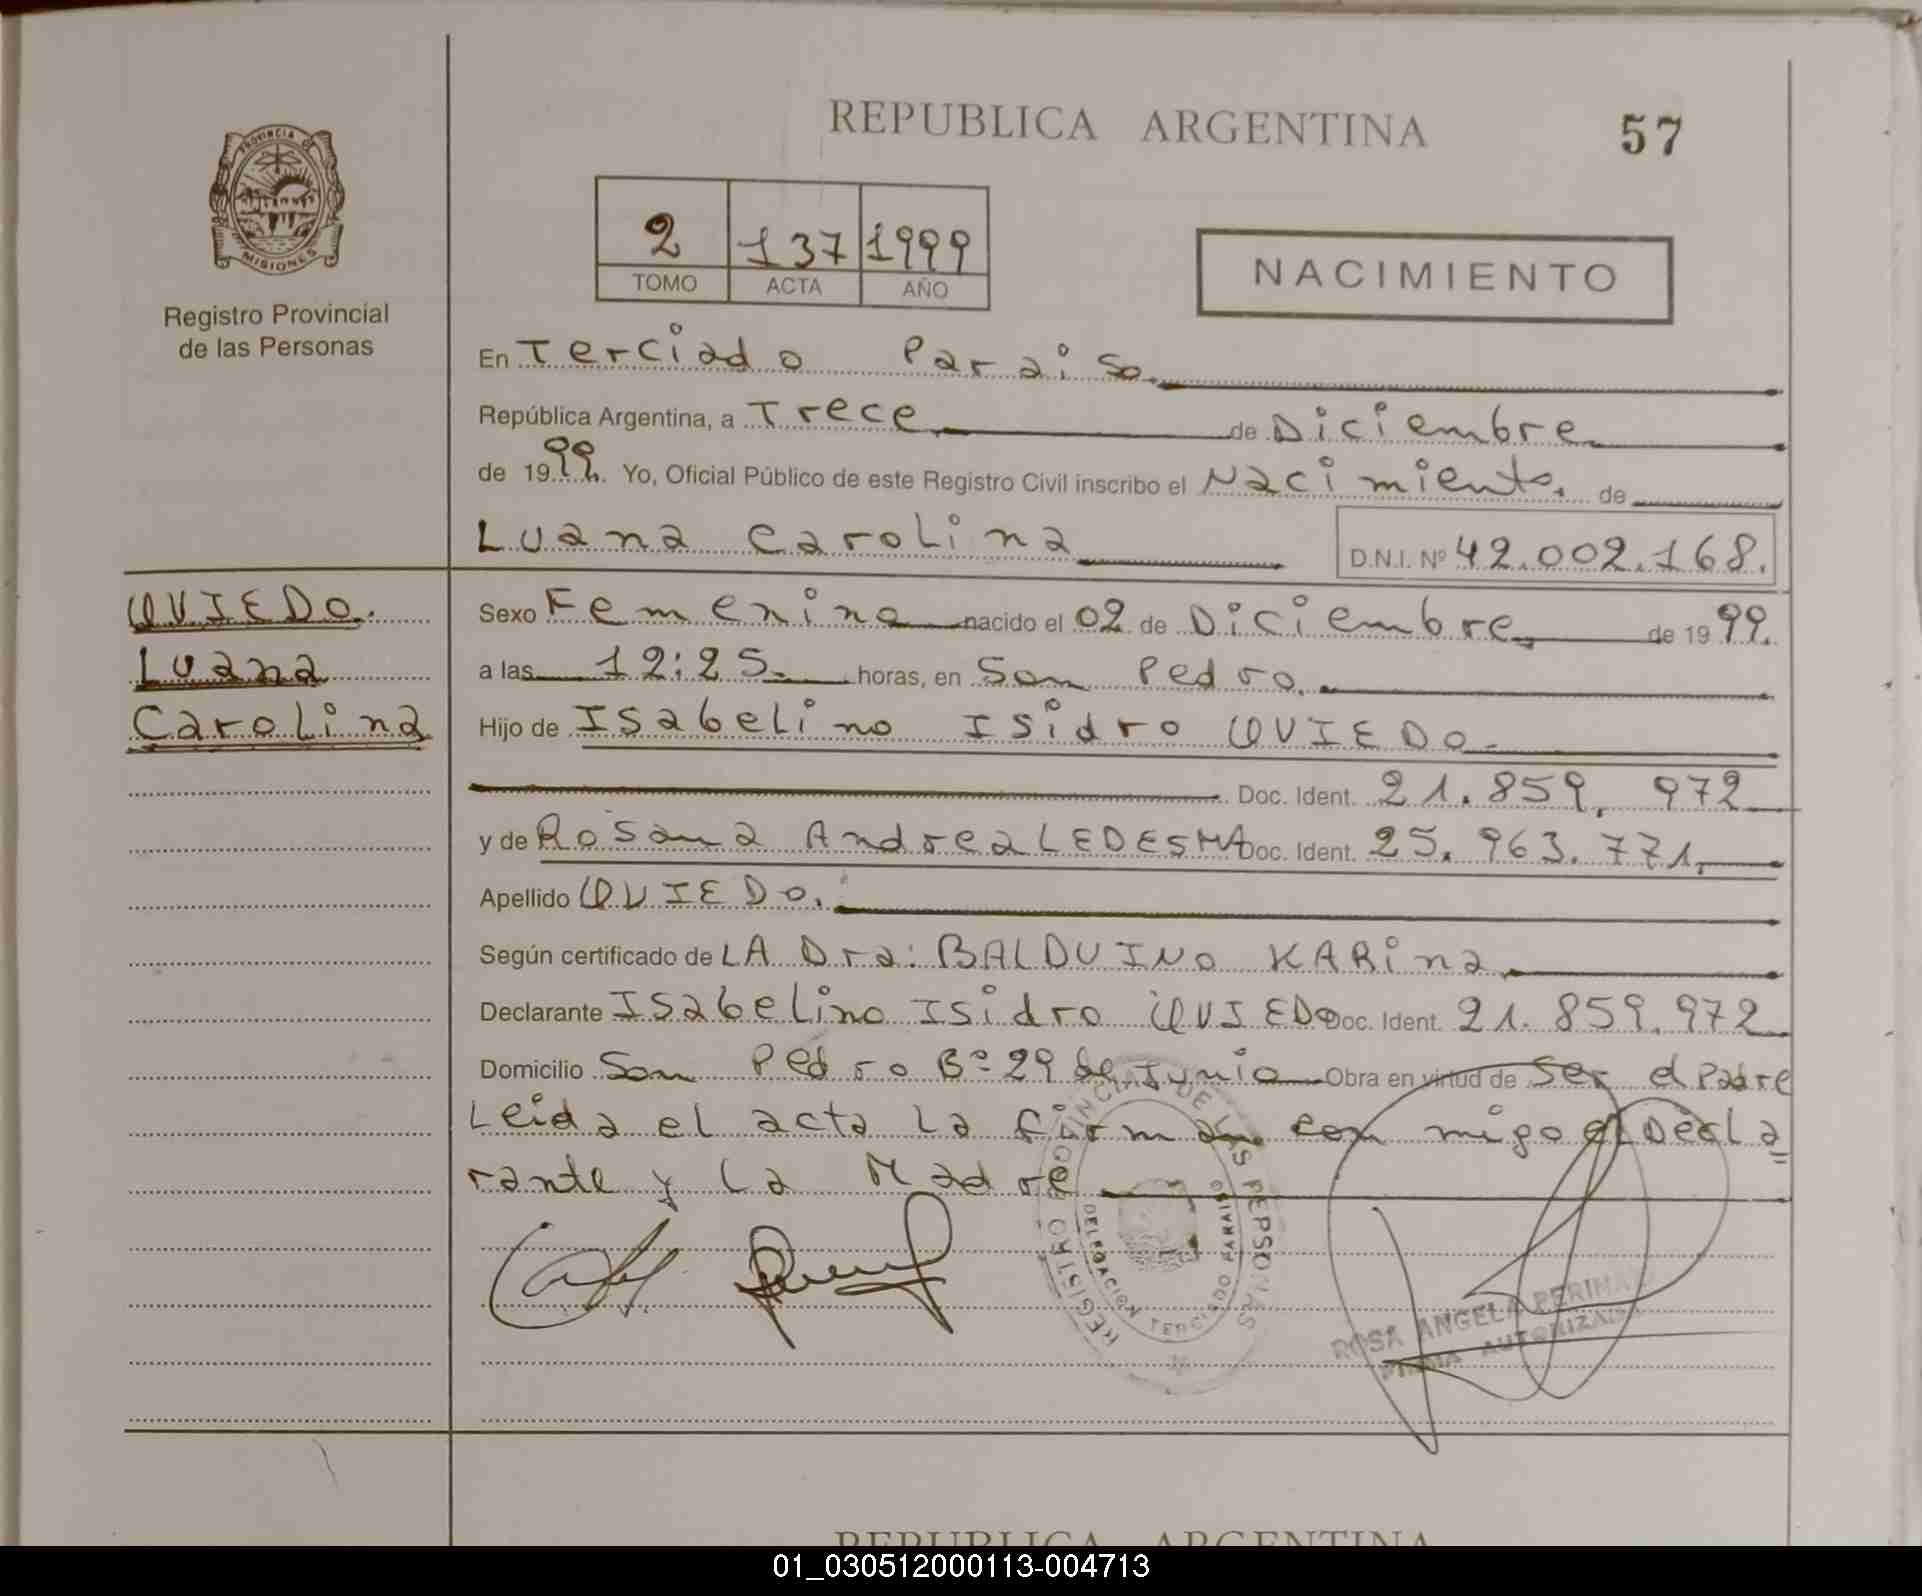 REPUBLICA ARGENTINA
57
PROVINCIA DE
MISIONES
Registro Provincial
de las Personas
2 137 1999
TOMO ACTA AÑO
NACIMIENTO
En Terciado Paraiso.
República Argentina, a Trece de Diciembre
de 1999. Yo, Oficial Público de este Registro Civil inscribo el Nacimiento. de
Luana Carolina D.N.I. Nº 42.002.168.
OVIEDO.
Luana
Carolina
Sexo Femenino nacido el 02 de Diciembre de 1999.
a las 12:25. horas, en San Pedro.
Hijo de Isabelino Isidro OVIEDO
Doc. Ident. 21.859.972
y de Rosana Andrea LEDESMA Doc. Ident. 25.963.771.
Apellido OVIEDO.
Según certificado de LA Dra: BALDUINO KARina
Declarante Isabelino Isidro OVIEDO Doc. Ident. 21.859.972
Domicilio San Pedro Bº 29 de Junio Obra en virtud de Ser el Padre
Leida el acta La firman con migo el Decla
rante y La Madre
REGISTRO PROVINCIAL DE LAS PERSONAS
DELEGACION TERCIADO PARAISO
ROSA ANGELA
FIRMA AUTORIZADA
REPUBLICA ARGENTINA
01_030512000113-004713